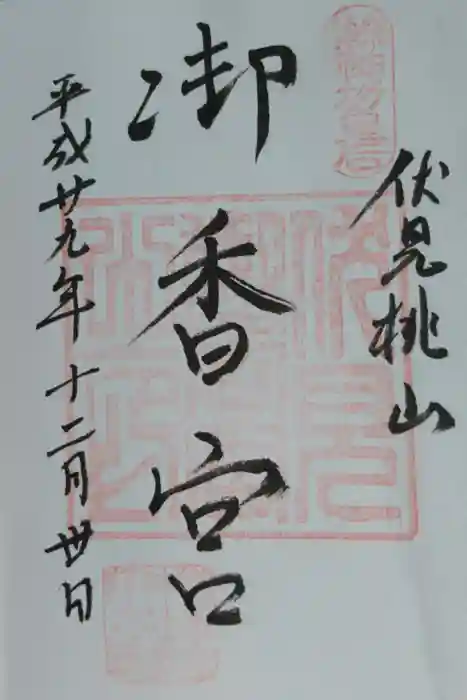 伏見桃山
御香宮
平成廿九年十二月卅日